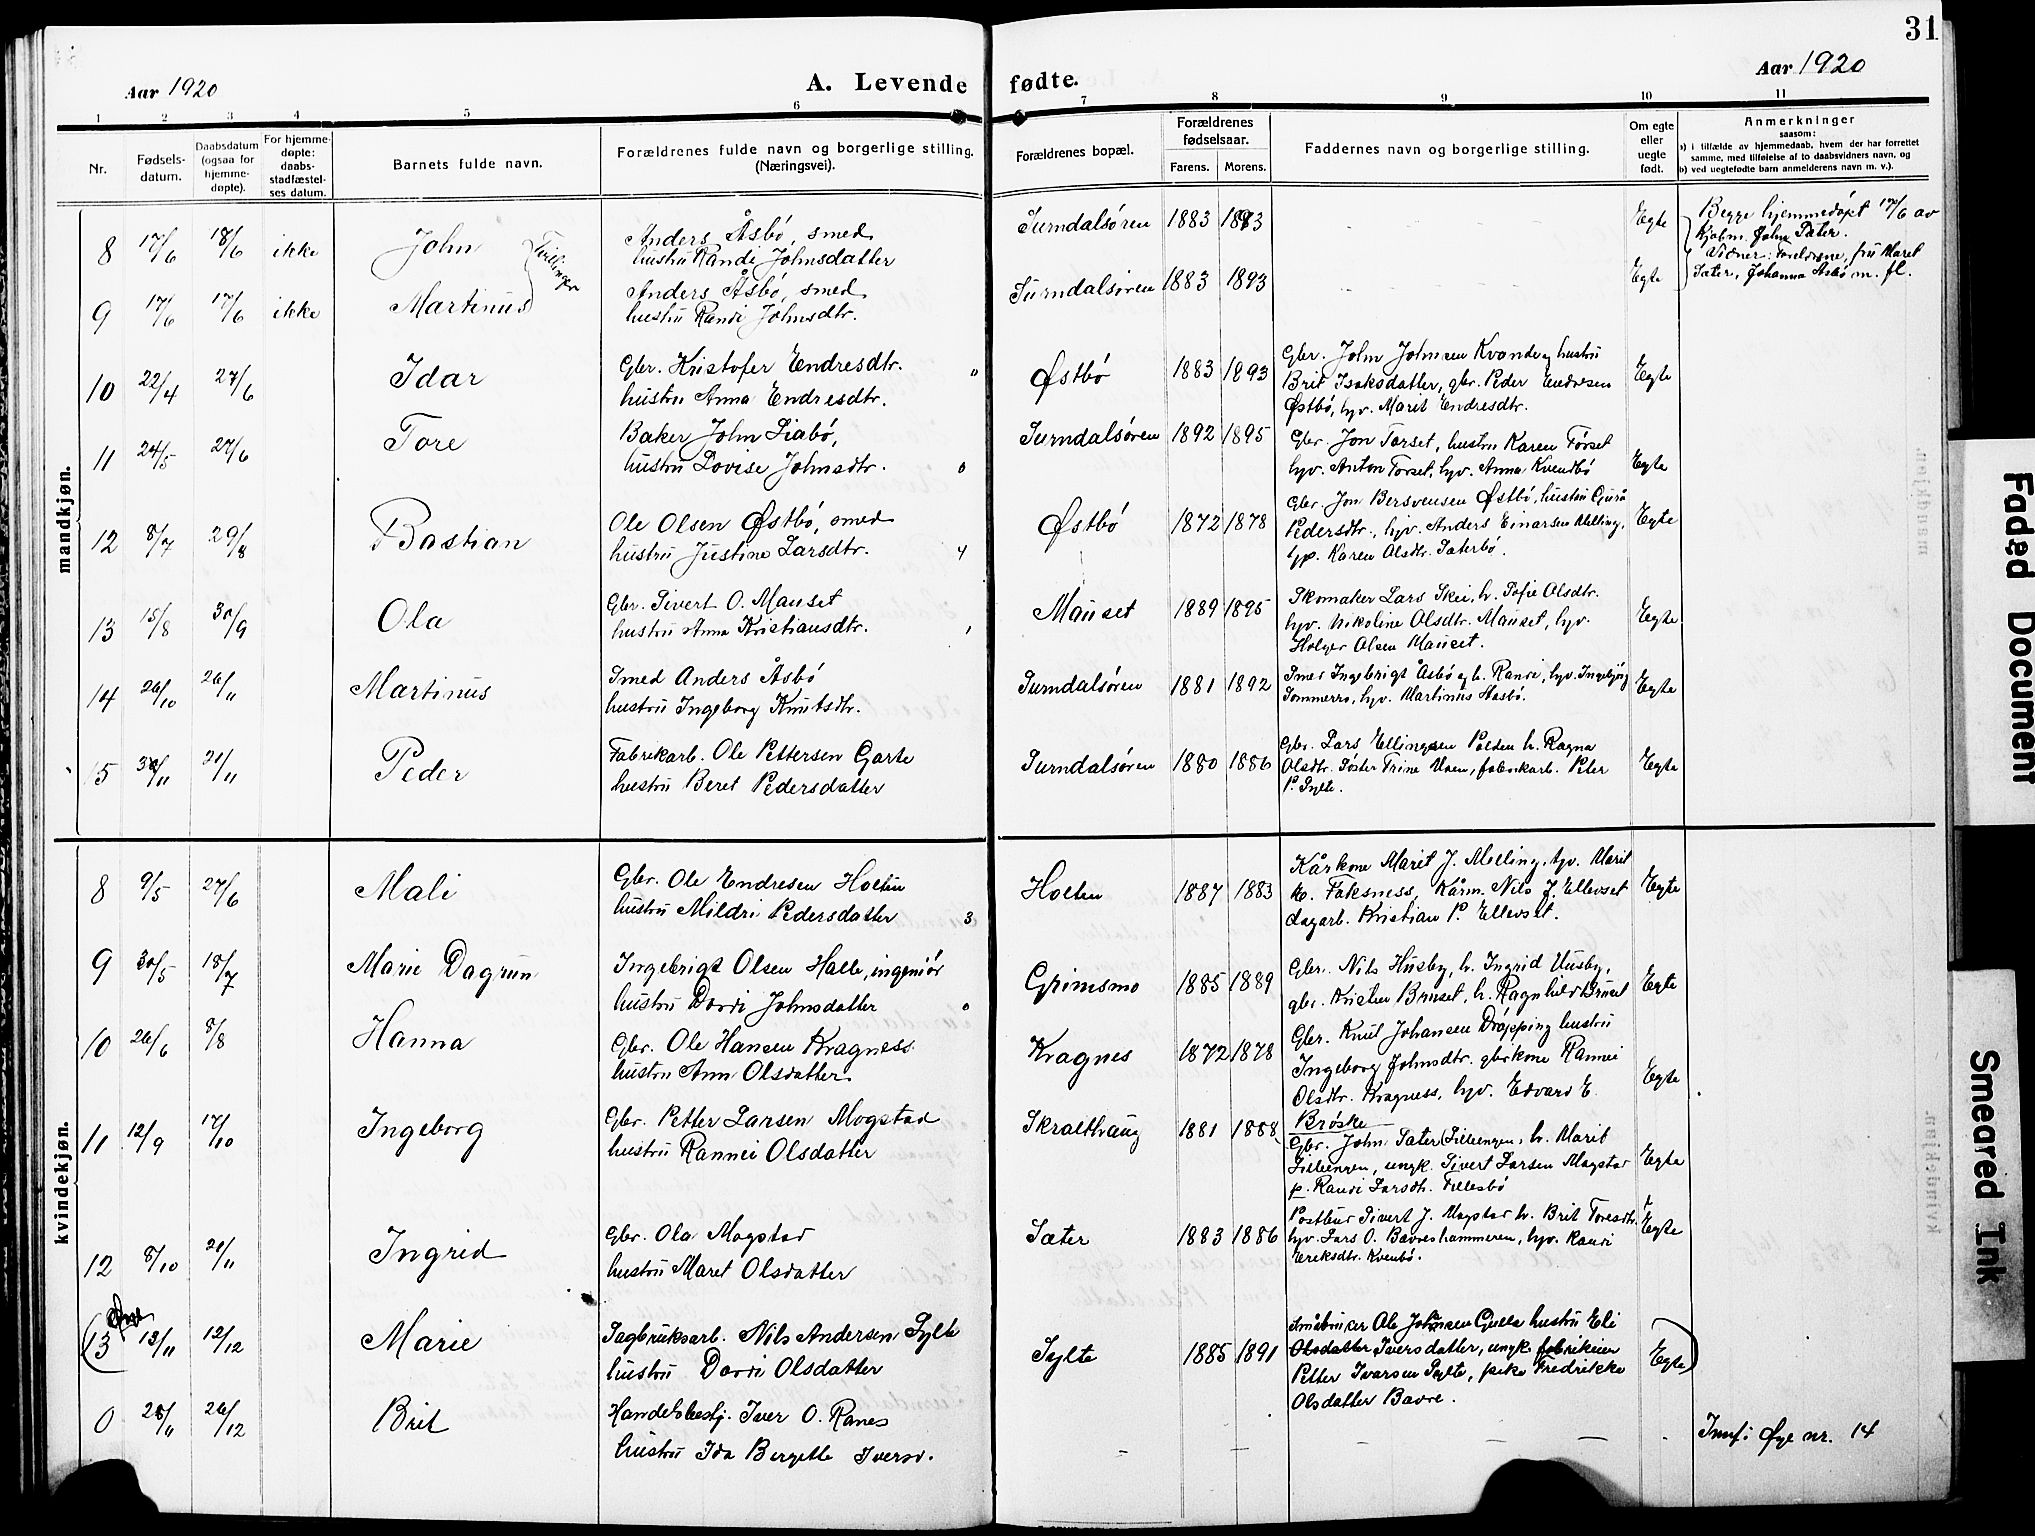 31
Aar 1920
A. Levende fødte.
Aar 1920
1 2 3 4 5 6 7 8 9 10 11
Nr.
Fødsels-
datum.
Daabsdatum
(ogsaa for
hjemme-
døpte).
For hjemme-
døpte:
daabs-
stadfæstel-
ses datum.
Barnets fulde navn.
Forældrenes fulde navn og borgerlige stilling.
(Næringsvei).
Forældrenes bopæl.
Forældrenes
fødselsaar.
Farens. Morens.
Faddernes navn og borgerlige stilling.
Om egte
eller
uegte
født.
Anmerkninger
saasom:
a) i tilfælde av hjemmedaab, hvem der har forrettet
samme, med tilføielse af to daabsvidners navn, og
b) ved uegtefødte barn anmelderens navn m. v.).
mandkjøn.
8 17/6 18/6 ikke John Tvillinger
Anders Åsbö, smed
hustru Randi Johnsdatter
Surndalsøren 1883 1893 Egte
Begge hjemmedöpt 17/6 av
Kjøbm. John Sæter.
Vidner: Foreldrene, fru Maret
Sæter, Johanna Åsbö m. fl.
9 17/6 17/6 ikke Martinus
Anders Åsbö, smed
hustru Randi Johnsdtr.
Surndalsøren 1883 1893 Egte
10 22/4 27/6 Idar
Gbr. Kristofer Endresdtr.
hustru Anna Endresdtr.
0
Østbö 1883 1893
Gbr. John Johnsen Kvande og hustru
Brit Isaksdatter, gbr. Peder Endresen
Østbö, hv. Marit Endresdtr.
Egte
11 24/5 27/6 Tore
Baker John Liabö,
hustru Lovise Johnsdtr.
0
Surndalsøren 1892 1895
Gbr. Jon Torset, hustru Karen Torset
hgv. Anton Torset, hgv. Anna Kvendbö
Egte
12 8/7 29/8 Bastian
Ole Olsen Østbö, smed
hustru Justine Larsdtr.
4
Østbö 1872 1878
Gbr. Jon Bersvensen Østbö, hustru Guru
Pedersdtr., hgv. Anders Einarsen Melling,
hp. Karen Olsdtr. Sæterbö.
Egte
13 15/8 30/9 Ola
Gbr. Sivert O. Mauset
hustru Anna Kristiansdtr.
1
Mauset 1889 1895
Skomaker Lars Skei, h. Sofie Olsdtr.
hgv. Nikoline Olsdtr. Mauset, hgv.
Holger Olsen Mauset.
Egte
14 26/10 26/11 Martinus
Smed Anders Åsbö
hustru Ingeborg Knutsdtr.
Surndalsøren 1881 1892
Smed Ingebrigt Åsbö og h. Randi, hgv. Ingebjörg
Sommerro, hgv. Martinus Hasbö.
Egte
15 21/11 Peder
Fabrikarb. Ole Pettersen Garte
hustru Beret Pedersdatter
Surndalsøren 1880 1886
Gbr. Lars Ellingsen Polden h. Ragna
Olsdtr. Søster Trine Moen, fabrikarb. Peter
P. Sylte.
Egte
kvindekjøn.
8 9/5 27/6 Mali
Gbr. Ole Endresen Holten
hustru Mildri Pedersdatter
3
Holten 1887 1883
Kårkone Marit J. Melling, hgv. Marit
K. Faksness, Kårm. Nils J. Ellevset
dagarb. Kristian P. Ellevset.
Egte
9 30/5 18/7 Marie Dagrun
Ingebrigt Olsen Halle, ingeniör
hustru Dordi Johnsdatter
0
Grimsmo 1885 1889
Gbr. Nils Husby, h. Ingrid Husby,
gbr. Kristen Bruset, h. Ragnhild Bruset
Egte
10 26/6 8/8 Hanna
Gbr. Ole Hansen Kragness
hustru Ann Olsdatter
Kragnes 1872 1878
Gbr. Knut Johansen Dröpping hustru
Ingeborg Johnsdtr. gbrkone Rannei
Olsdtr. Kragness, hgv. Edvard E.
Bröske
Egte
11 12/9 17/10 Ingeborg
Gbr. Petter Larsen Mogstad
hustru Rannei Olsdatter
Skralthaug 1881 1888
Gbr. John Sæter Lillеengen, h. Marit
Lilleengen, ungk. Sivert Larsen Mogstad
p. Randi Larsdtr. Tellesbö
Egte
12 8/10 21/11 Ingrid
Gbr. Ola Mogstad
hustru Maret Olsdatter
Sæter 1883 1886
Postbud Sivert J. Mogstad h. Brit Toresdtr.
hgv. Lars O. Bævreshammeren, hgv. Randi
Ereksdtr. Kvenbö.
Egte
(13 13/11 12/12 Marie
Sagbruksarb. Nils Andersen Sylte
hustru Dordi Olsdatter
Sylte 1885 1891
Småbruker Ole Johnsen Gulla hustru Eli
Olsdatter Iversdatter, ungk. fabrikeier
Petter Ivarsen Sylte, pike Fredrikke
Olsdatter Bævre.
Egte)
0 28/11 26/12 Brit
Handelsbestj. Iver O. Ranes
hustru Ida Bergette Iversd.
Innf. Øye nr. 14
Faded Document
Smeared Ink